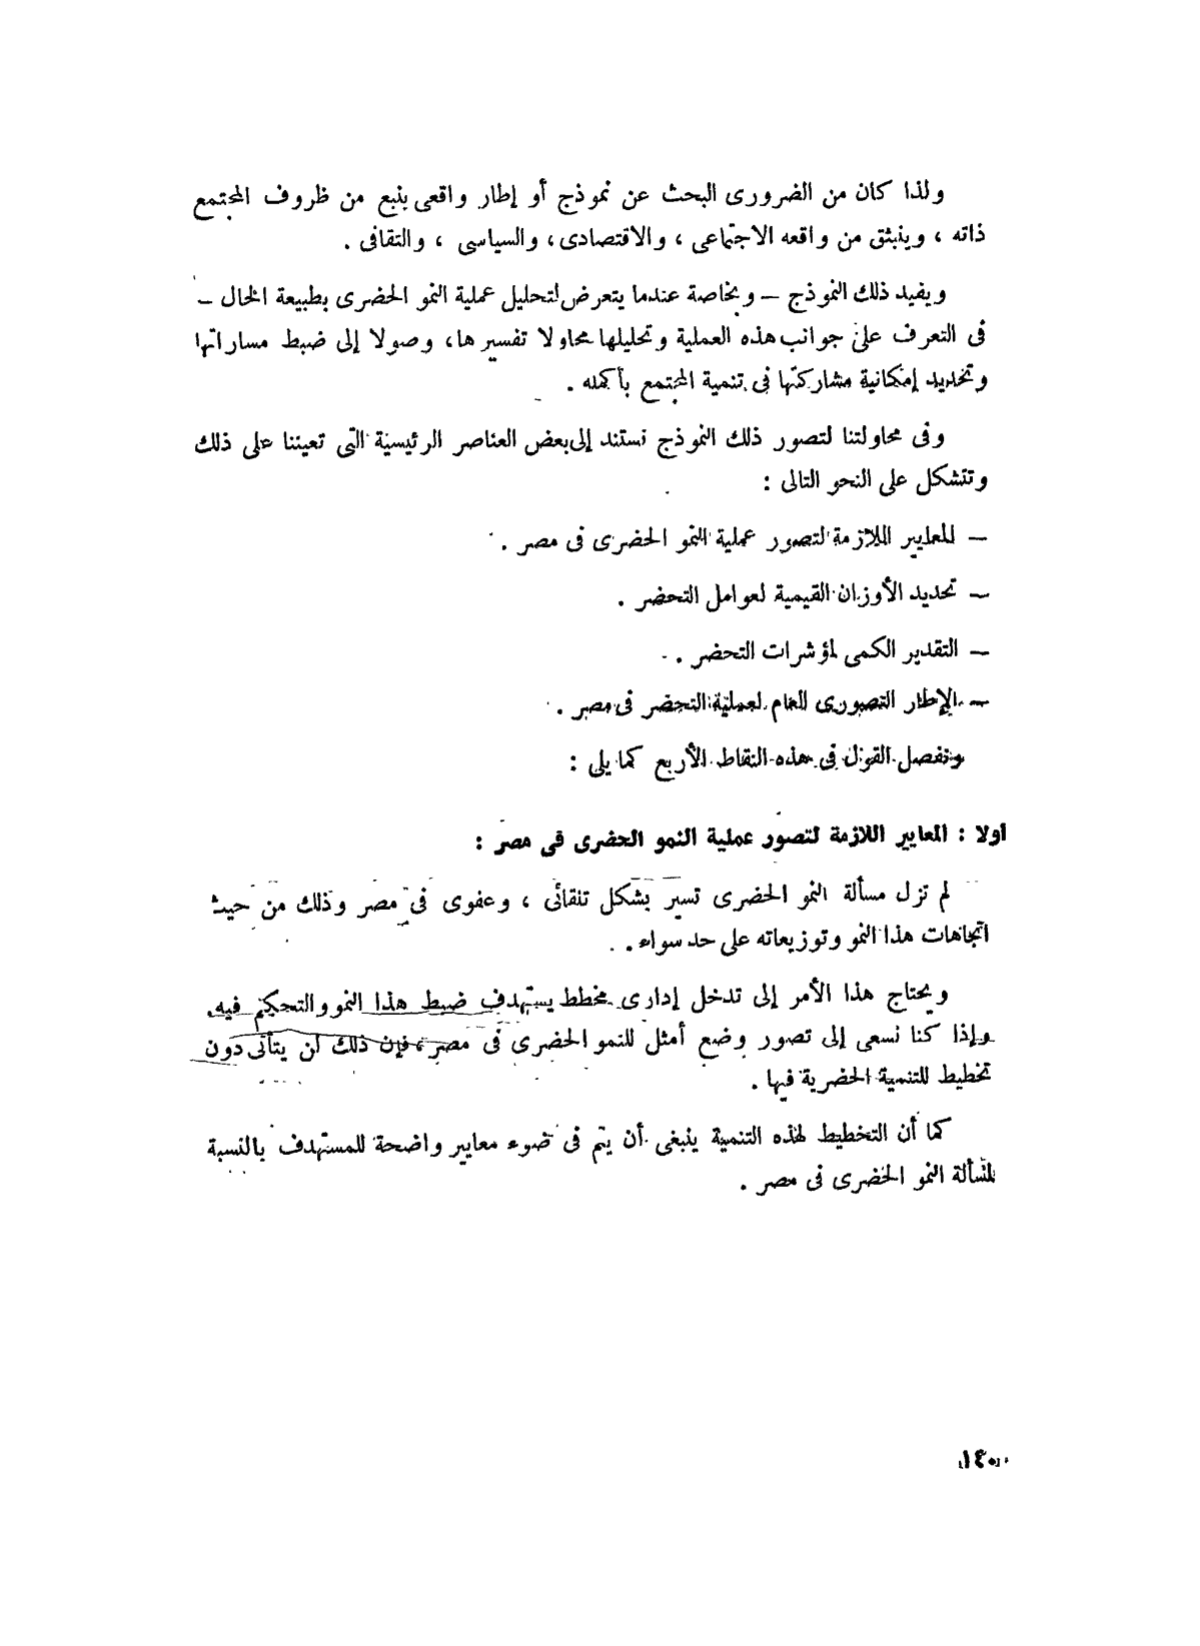 ولذا كان من الضرورى البحث عن نموذج أو إطار واقعى ينبع من ظروف المجتمع
ذاته ، وينبثق من واقعه الاجتماعى ، والاقتصادى، والسياسى ، والثقافى .
ويفيد ذلك النموذج – وبخاصة عندما يتعرض لتحليل عملية النمو الحضرى بطبيعة الحال –
فى التعرف على جوانب هذه العملية وتحليلها محاولا تفسيرها، وصولا إلى ضبط مساراتها
وتحديد إمكانية مشاركتها فى تنمية المجتمع بأكمله .
وفى محاولتنا لتصور ذلك النموذج نستند إلى بعض العناصر الرئيسية التى تعيننا على ذلك
وتتشكل على النحو التالى :
– المعايير اللازمة لتصور عملية النمو الحضرى فى مصر .
– تحديد الأوزان القيمية لعوامل التحضر .
– التقدير الكمى لمؤشرات التحضر .
– الإطار التصورى العام لعملية التحضر فى مصر .
ونفصل القول فى هذه النقاط الأربع كما يلى :
اولا : المعايير اللازمة لتصور عملية النمو الحضرى فى مصر :
لم تزل مسألة النمو الحضرى تسير بشكل تلقائى ، وعفوى فى مصر وذلك من حيث
اتجاهات هذا النمو وتوزيعاته على حد سواء .
ويحتاج هذا الأمر إلى تدخل إدارى مخطط يستهدف ضبط هذا النمو والتحكم فيه.
وإذا كنا نسعى إلى تصور وضع أمثل للنمو الحضرى فى مصر ، فإن ذلك لن يتأتى دون
تخطيط للتنمية الحضرية فيها .
كما أن التخطيط لهذه التنمية ينبغى أن يتم فى ضوء معايير واضحة للمستهدف بالنسبة
لمسألة النمو الحضرى فى مصر .
١٤٠